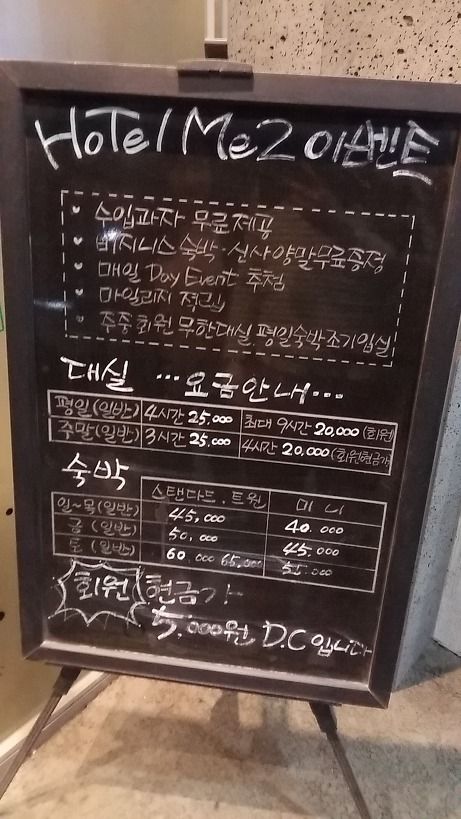 HoTel Me2 이벤트
수입과자 무료제공
비지니스 숙박·신사양말무료증정
매일 Day Event 추첨
마일리지 적립
주중회원 무한대실 평일숙박조기입실
대실 …요금안내…
평일(일반) 4시간 25,000 최대 9시간 20,000 (회원)
주말(일반) 3시간 25,000 4시간 20,000 (회원현금가)
숙박
스탠다드, 트윈 미니
일~목(일반) 45,000 40.000
금 (일반) 50,000 45.000
토 (일반) 60.000 65,000 55.000
회원 현금가
5,000원 D.C 입니다